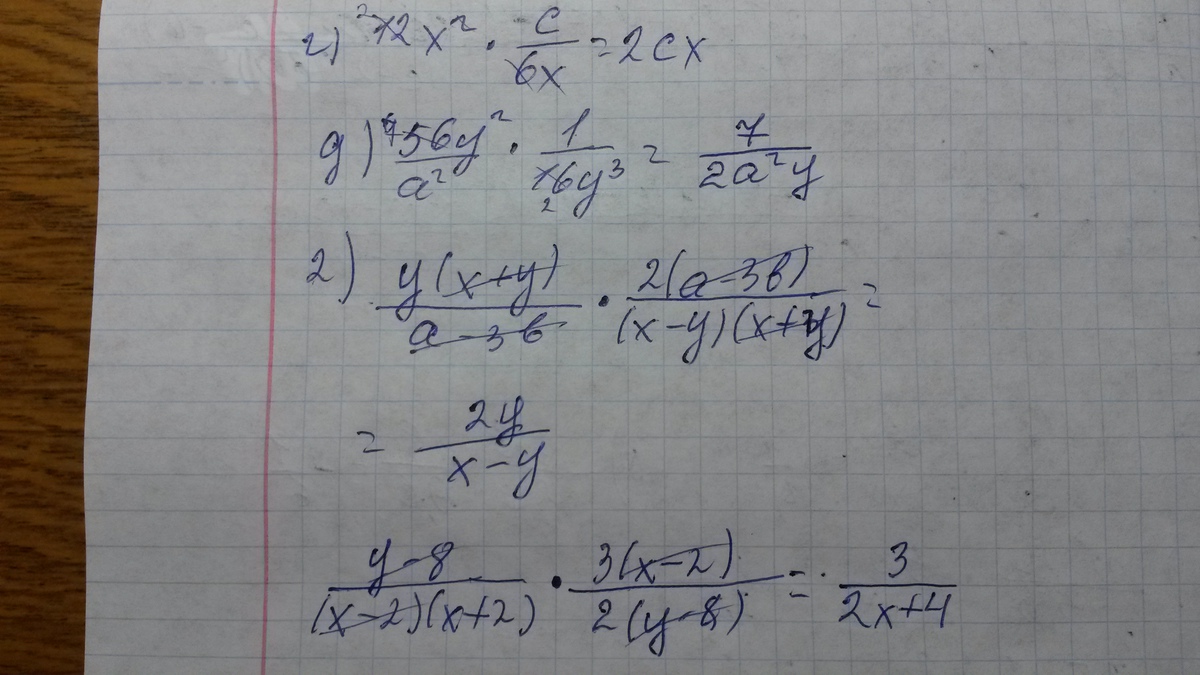 г) 12x² · c/6x = 2cx
д) 56y²/a² · 1/16y³ = 7/2a²y
2) y(x+y)/a-3b · 2(a-3b)/(x-y)(x+y) =
= 2y/x-y
y-8/(x-2)(x+2) · 3(x-2)/2(y-8) = 3/2x+4